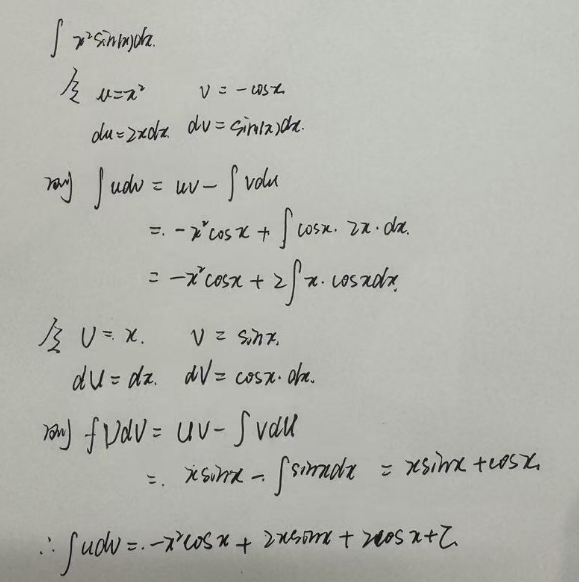 ∫ x² sin(x) dx.
令 u = x²  v = -cosx
du = 2xdx.  dv = sin(x) dx.
则 ∫ udv = uv - ∫ vdu
= -x² cosx + ∫ cosx · 2x · dx.
= -x² cosx + 2∫ x · cosxdx.
令 U = x.  V = sinx.
dU = dx.  dV = cosx · dx.
则 ∫ UdV = UV - ∫ VdU
= xsinx - ∫ sinxdx = xsinx + cosx.
∴ ∫ udv = -x² cosx + 2xsinx + 2cosx + C.